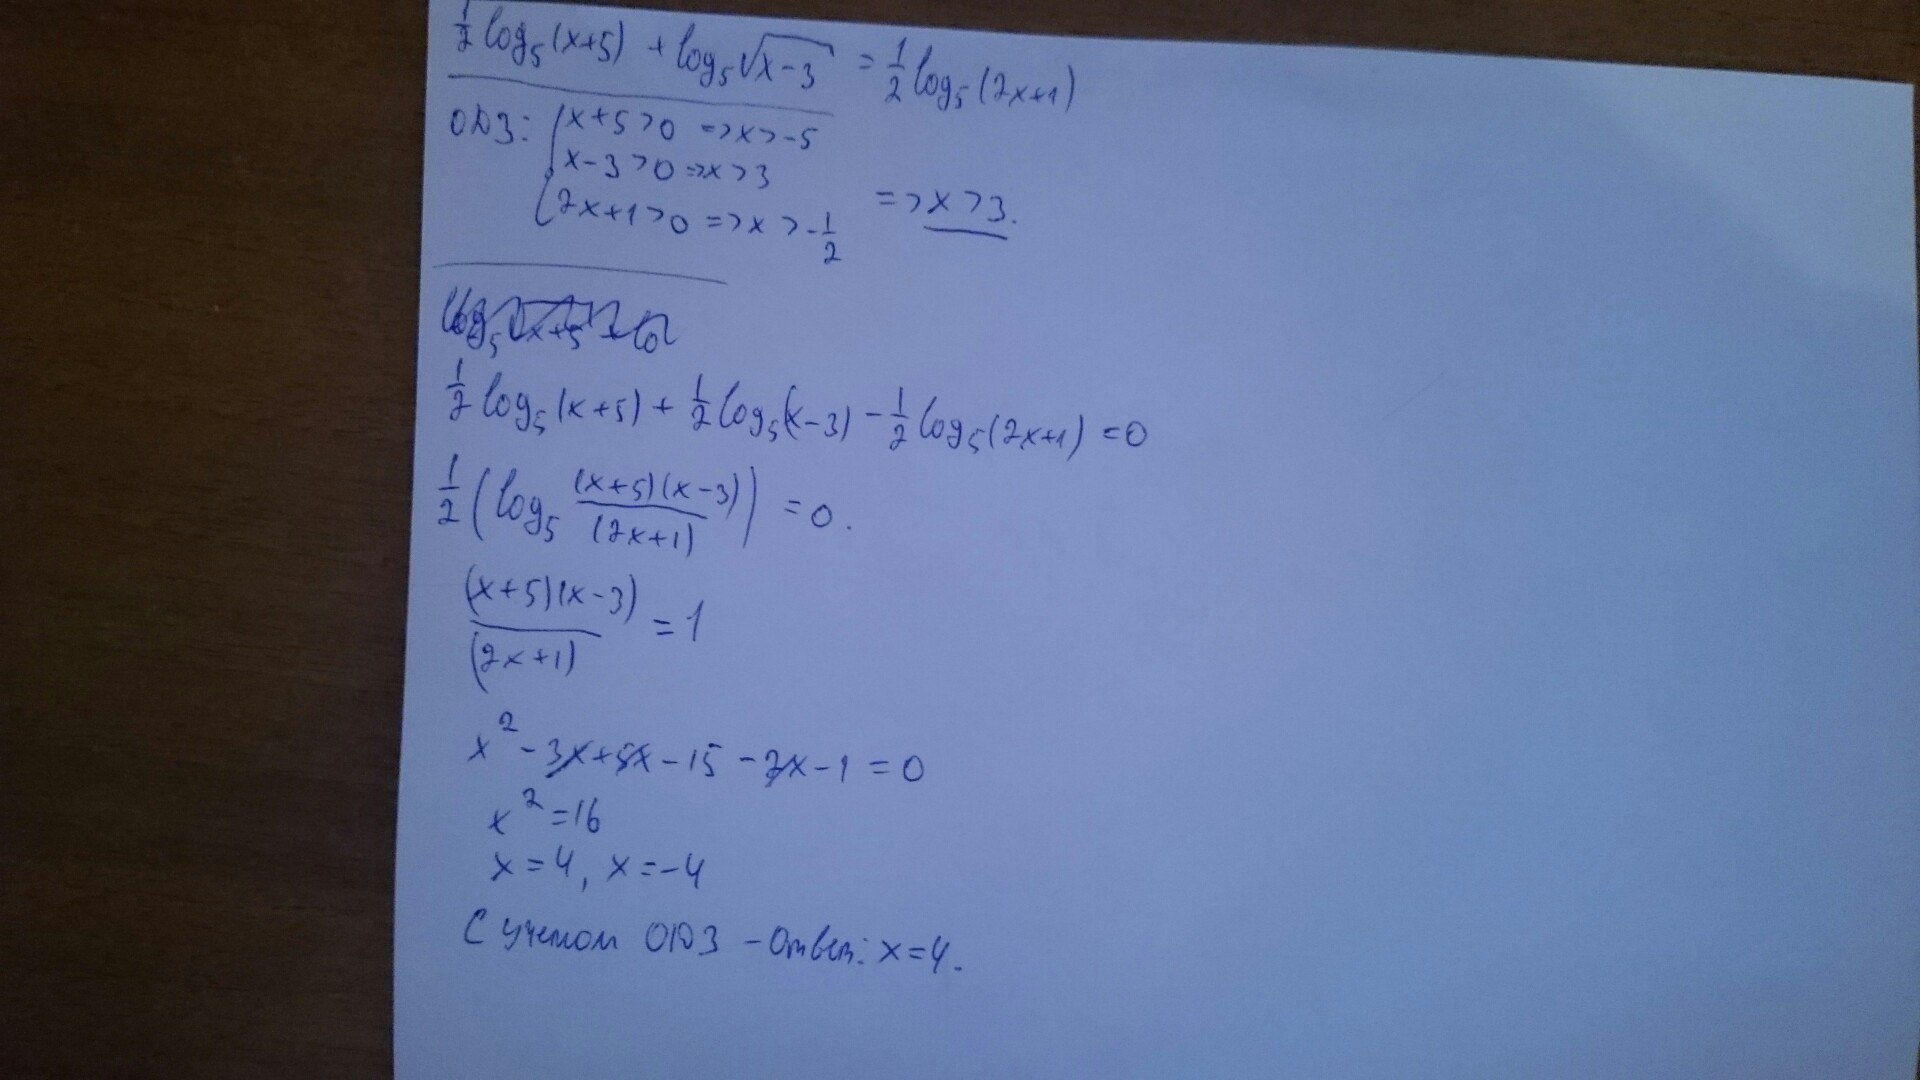 ½ log₅(x+5) + log₅√(x-3) = ½ log₅(2x+1)
ОДЗ: { x+5>0 => x>-5
x-3>0 => x>3
2x+1>0 => x>-½ => x>3.
½ log₅(x+5) + ½ log₅(x-3) - ½ log₅(2x+1) = 0
½ (log₅ (x+5)(x-3)/(2x+1)) = 0.
(x+5)(x-3)/(2x+1) = 1
x² - 3x + 5x - 15 - 2x - 1 = 0
x² = 16
x = 4, x = -4
С учетом ОДЗ - Ответ: x = 4.